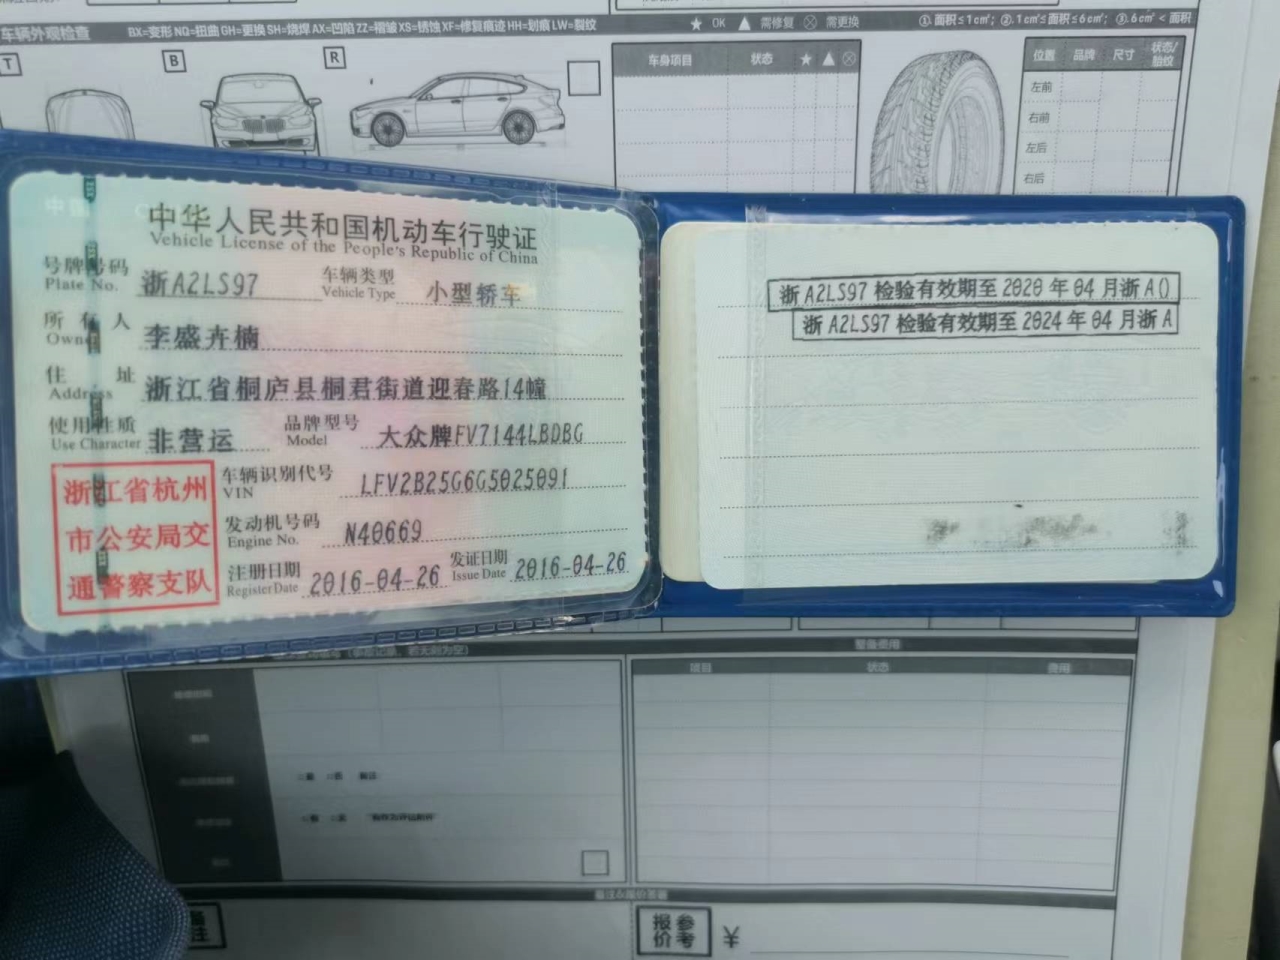 ★ OK ▲ 需修复 ⊗ 需更换
①.面积≤1c㎡; ②.1c㎡≤面积≤6c㎡; ③.6c㎡<面积
车辆外观检查
BX=变形 NQ=扭曲 GH=更换 SH=烧焊 AX=凹陷 ZZ=褶皱 XS=锈蚀 XF=修复痕迹 HH=划痕 LW=裂纹
T
B
R
车身项目 状态 ★ ▲ ⊗
位置 品牌 尺寸 状态/胎纹
左前
右前
左后
右后
中华人民共和国机动车行驶证
Vehicle License of the People's Republic of China
号牌号码 浙A2LS97 车辆类型 小型轿车
Plate No. Vehicle Type
所有人 李盛卉楠
Owner
住址 浙江省桐庐县桐君街道迎春路14幢
Address
使用性质 非营运 品牌型号 大众牌FV7144LBDBG
Use Character Model
浙江省杭州
市公安局交
通警察支队
车辆识别代号 LFV2B25G6G5025091
VIN
发动机号码 N40669
Engine No.
注册日期 2016-04-26 发证日期 2016-04-26
Register Date Issue Date
浙A2LS97 检验有效期至 2020 年 04 月浙A()
浙A2LS97 检验有效期至 2024 年 04 月浙A
整备费用
项目 状态 费用
报价
参考
¥